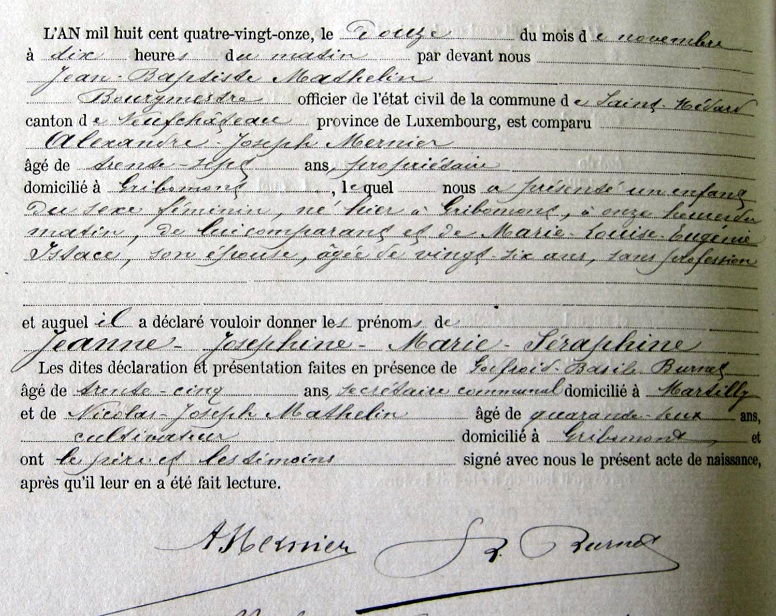 L'AN mil huit cent quatre-vingt-onze, le Douze du mois de novembre
à dix heures du matin par devant nous
Jean-Baptiste Mathelin
Bourgmestre officier de l'état civil de la commune de Saint-Médard
canton de Neufchâteau province de Luxembourg, est comparu
Alexandre-Joseph Mernier
âgé de trente-sept ans, propriétaire
domicilié à Gribomont, lequel nous a présenté un enfant
du sexe féminin, né hier à Gribomont, à onze heures du
matin, de lui comparant et de Marie-Louise-Eugénie
Istace, son épouse, âgée de vingt-six ans, sans profession
et auquel il a déclaré vouloir donner les prénoms de
Jeanne-Josephine-Marie-Séraphine
Les dites déclaration et présentation faites en présence de Basile Burnet
âgé de trente-cinq ans, secrétaire communal domicilié à Martilly
et de Nicolas-Joseph Mathelin âgé de quarante-deux ans,
cultivateur domicilié à Gribomont et
ont le père et les témoins signé avec nous le présent acte de naissance,
après qu'il leur en a été fait lecture.
A Mernier B. Burnet